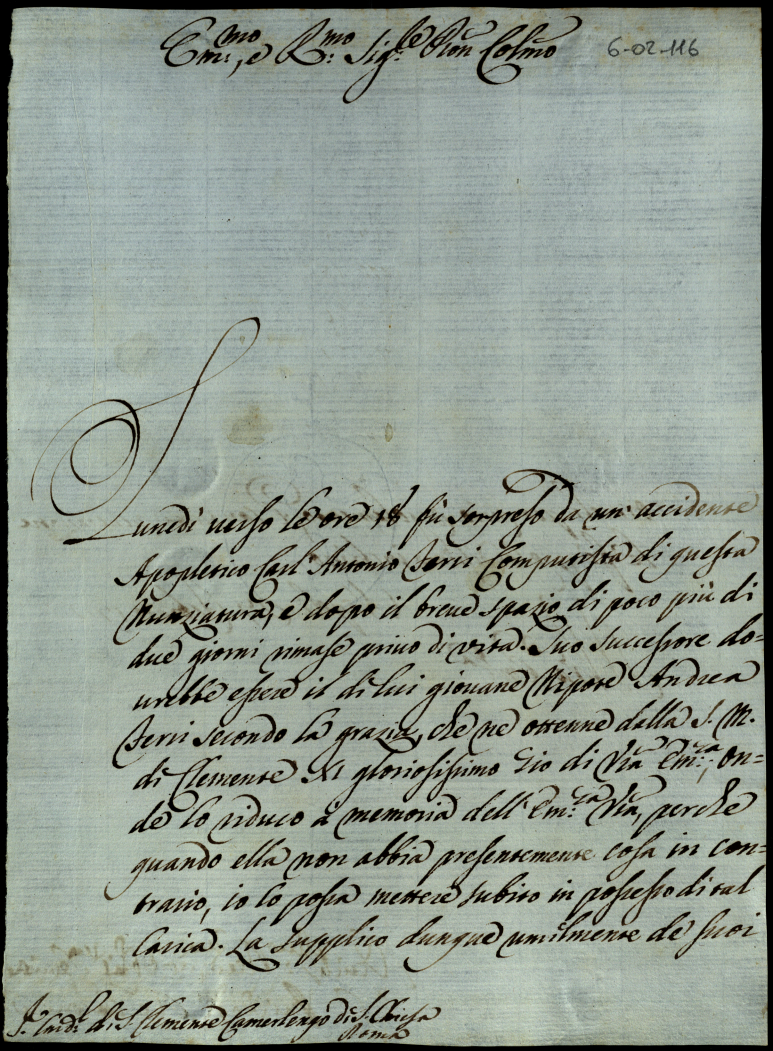 Em:mo, e R:mo Sig:re Pron Colmo
6-02-116
Lunedì verso le ore 18 fù sorpreso da un' accidente
Apopletico Carl' Antonio Servi Computista di questa
Nunziatura, e dopo il breve spazio di poco più di
due giorni rimase privo di vita. Suo successore do=
vrebbe essere il di lui giovane Nipote Andrea
Servi secondo la grazia, che ne ottenne dalla S. M.
di Clemente XI gloriosissimo Zio di Vra Em:za, on=
de lo riduco à memoria dell' Em:za Vra, perche
quando ella non abbia presentemente cosa in con=
trario, io lo possa mettere subito in possesso di tal
Carica. La supplico dunque umilmente de suoi
S. Card.l di S. Clemente Camerlengo di S. Chiesa
Roma